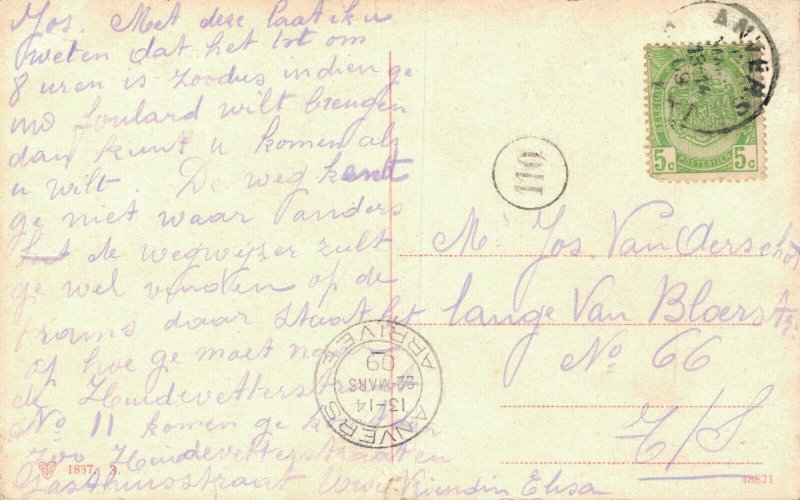 Jos. Met deze laat ik u
weten dat het tot om
8 uren is zoodus indien ge
uw foulard wilt brengen
dan kunt u komen als
u wilt. De weg kent
ge niet waar anders
de wegwijzer zult
ge wel vinden op de
trams daar staat het
op hoe ge moet
de Huidevetterstraat
No 11 komen ge
Huidevetterstraat en
Gasthuisstraat uwe Vriendin Elisa
ANVERS
5c 5c
POSTERIJEN
110
Mr Jos. Van Aerschot
lange Van Bloerstr
No 66
E/S.
ANVERS
13-14
22 MARS
09
ARRIVEE
1837. 3.
48821